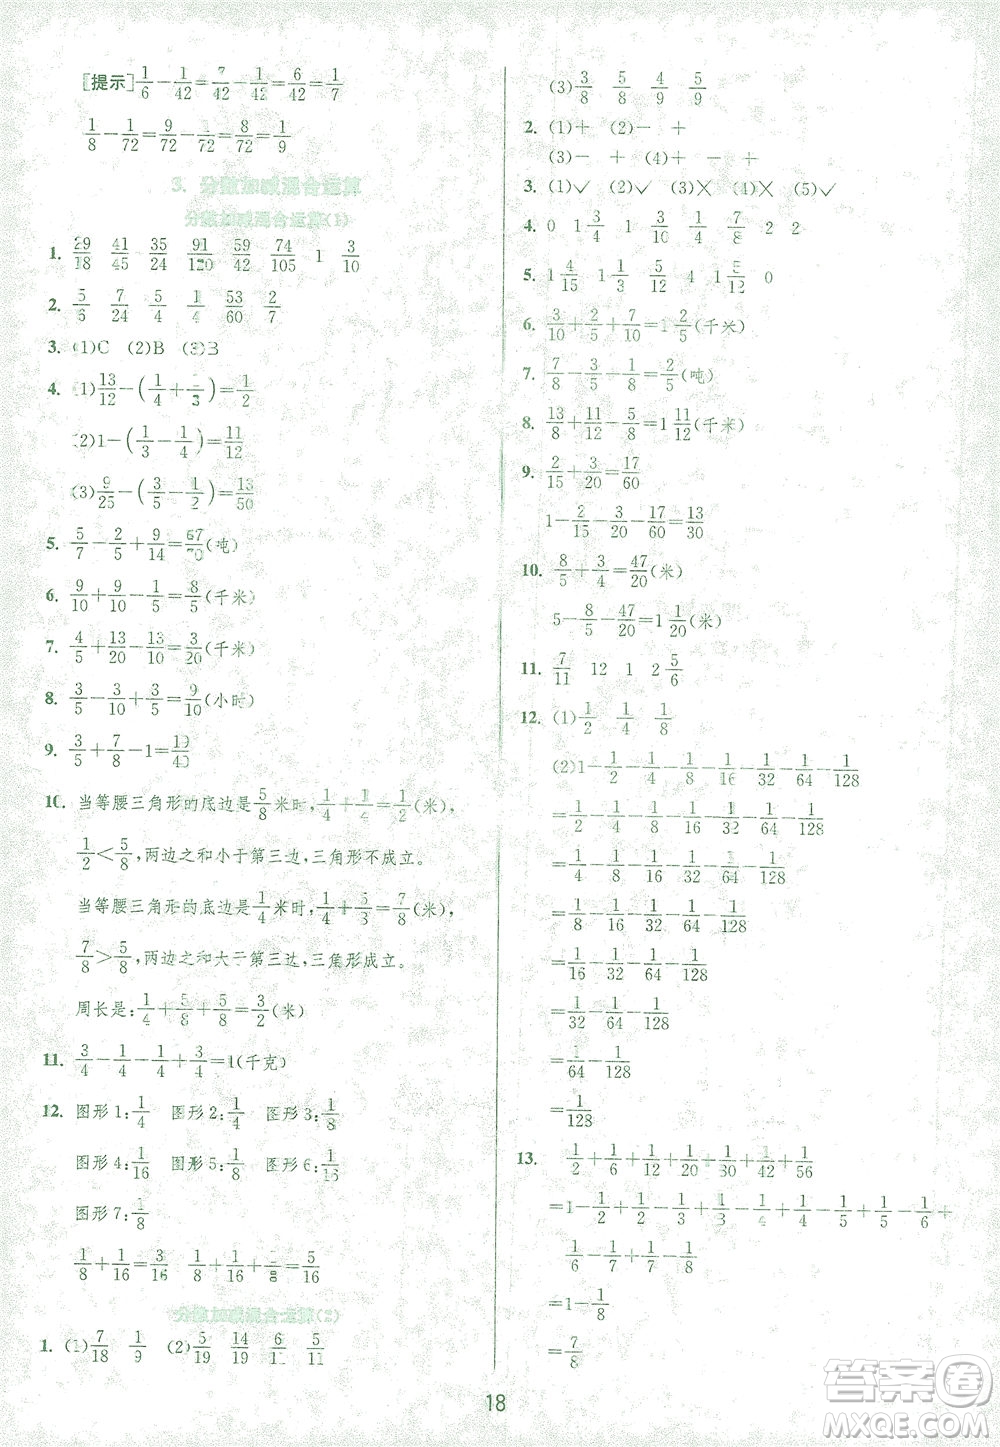 [提示]1/6-1/42=7/42-1/42=6/42=1/7
1/8-1/72=9/72-1/72=8/72=1/9
3. 分数加减混合运算
分数加减混合运算(1)
1. 29/18 41/45 35/24 91/120 59/42 74/105 1 3/10
2. 5/6 7/24 5/4 1/4 53/60 2/7
3. (1)C (2)B (3)B
4. (1)13/12-(1/4+1/3)=1/2
(2)1-(1/3-1/4)=11/12
(3)9/25-(3/5-1/2)=13/50
5. 5/7-2/5+9/14=67/70(吨)
6. 9/10+9/10-1/5=8/5(千米)
7. 4/5+13/20-13/10=3/20(千米)
8. 3/5-3/10+3/5=9/10(小时)
9. 3/5+7/8-1=19/40
10. 当等腰三角形的底边是5/8米时,1/4+1/4=1/2(米),
1/2<5/8,两边之和小于第三边,三角形不成立。
当等腰三角形的底边是1/4米时,1/4+5/3=7/8(米),
7/8>5/8,两边之和大于第三边,三角形成立。
周长是:1/4+5/8+5/8=3/2(米)
11. 3/4-1/4-1/4+3/4=1(千克)
12. 图形1:1/4 图形2:1/4 图形3:1/8
图形4:1/16 图形5:1/8 图形6:1/16
图形7:1/8
1/8+1/16=3/16 1/8+1/16+1/8=5/16
分数加减混合运算(2)
1. (1)7/18 1/9 (2)5/19 14/19 6/11 5/11
(3)3/8 5/8 4/9 5/9
2. (1)+ (2)- +
(3)- + (4)+ - +
3. (1)✓ (2)✓ (3)✗ (4)✗ (5)✓
4. 0 1 3/4 1 3/10 7/8 2 2
5. 1 4/15 1 1/3 5/12 4 1 1/4 0
6. 3/10+2/5+7/10=1 2/5(千米)
7. 7/8-3/5+1/8=2/5(吨)
8. 13/8+11/12-5/8=1 11/12(千米)
9. 2/15+3/20=17/60
1-2/15-3/20-17/60=13/30
10. 8/5+3/4=47/20(米)
5-8/5-47/20=1 1/20(米)
11. 7/11 12 1 2 5/6
12. (1)1/2 1/4 1/8
(2)1-1/2-1/4-1/8-1/16-1/32-1/64-1/128
=1/2-1/4-1/8-1/16-1/32-1/64-1/128
=1/4-1/8-1/16-1/32-1/64-1/128
=1/8-1/16-1/32-1/64-1/128
=1/16-1/32-1/64-1/128
=1/32-1/64-1/128
=1/64-1/128
=1/128
13. 1/2+1/6+1/12+1/20+1/30+1/42+1/56
=1-1/2+1/2-1/3+1/3-1/4+1/4-1/5+1/5-1/6+
1/6-1/7+1/7-1/8
=1-1/8
=7/8
18
答案圈
MXQE.COM